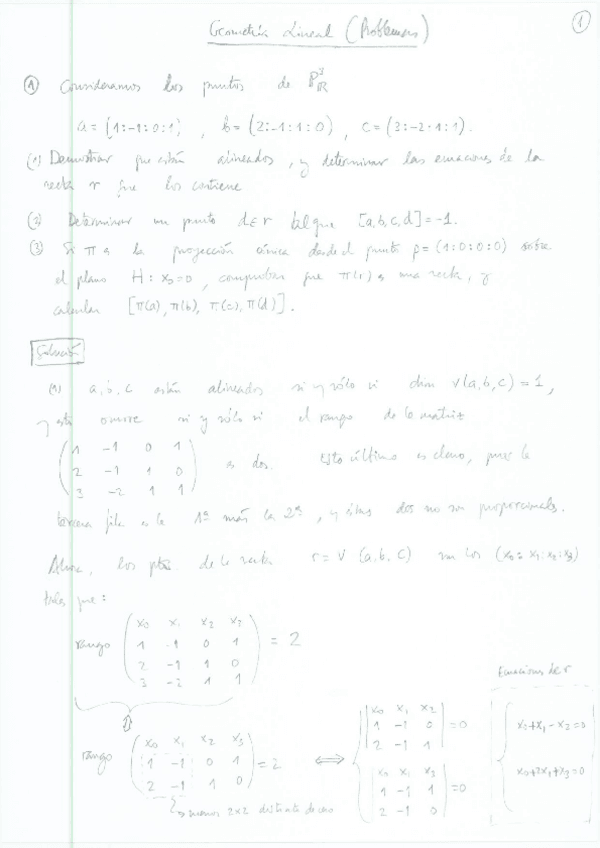 Geometría Lineal (Problemas)
1
① Consideramos los puntos de P³_R
a = (1:-1:0:1) , b = (2:-1:1:0) , c = (3:-2:1:1).
(1) Demostrar que están alineados, y determinar las ecuaciones de la
recta r que los contiene
(2) Determinar un punto d∈r tal que [a,b,c,d] = -1.
(3) Si π es la proyección cónica desde el punto p = (1:0:0:0) sobre
el plano H: x₀=0, comprobar que π(r) es una recta, y
calcular [π(a), π(b), π(c), π(d)].
Solución
(1) a, b, c están alineados si y sólo si dim V(a,b,c) = 1,
y esto ocurre si y sólo si el rango de la matriz
( 1 -1 0 1
2 -1 1 0
3 -2 1 1 ) es dos. Esto último es claro, pues la
tercera fila es la 1ª más la 2ª, y éstas dos no son proporcionales.
Ahora, los ptos de la recta r = V(a,b,c) son los (x₀:x₁:x₂:x₃)
tales que:
rango ( x₀ x₁ x₂ x₃
1 -1 0 1
2 -1 1 0
3 -2 1 1 ) = 2
⇕
rango ( x₀ x₁ x₂ x₃
1 -1 0 1
2 -1 1 0 ) = 2
menor 2x2 distinto de cero
⟺ { | x₀ x₁ x₂
1 -1 0
2 -1 1 | = 0
| x₀ x₁ x₃
1 -1 1
2 -1 0 | = 0
Ecuaciones de r
x₀+x₁-x₂=0
x₀+2x₁+x₃=0